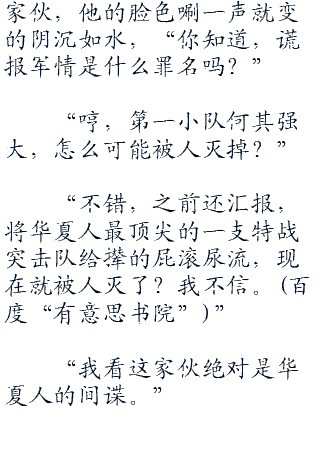 家伙，他的脸色唰一声就变
的阴沉如水，“你知道，谎
报军情是什么罪名吗？”
“哼，第一小队何其强
大，怎么可能被人灭掉？”
“不错，之前还汇报，
将华夏人最顶尖的一支特战
突击队给撵的屁滚尿流，现
在就被人灭了？我不信。(百
度“有意思书院”)”
“我看这家伙绝对是华
夏人的间谍。”